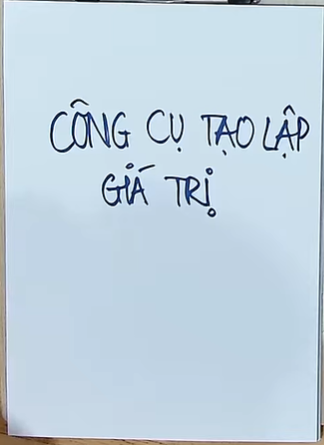 CÔNG CỤ TẠO LẬP
GIÁ TRỊ